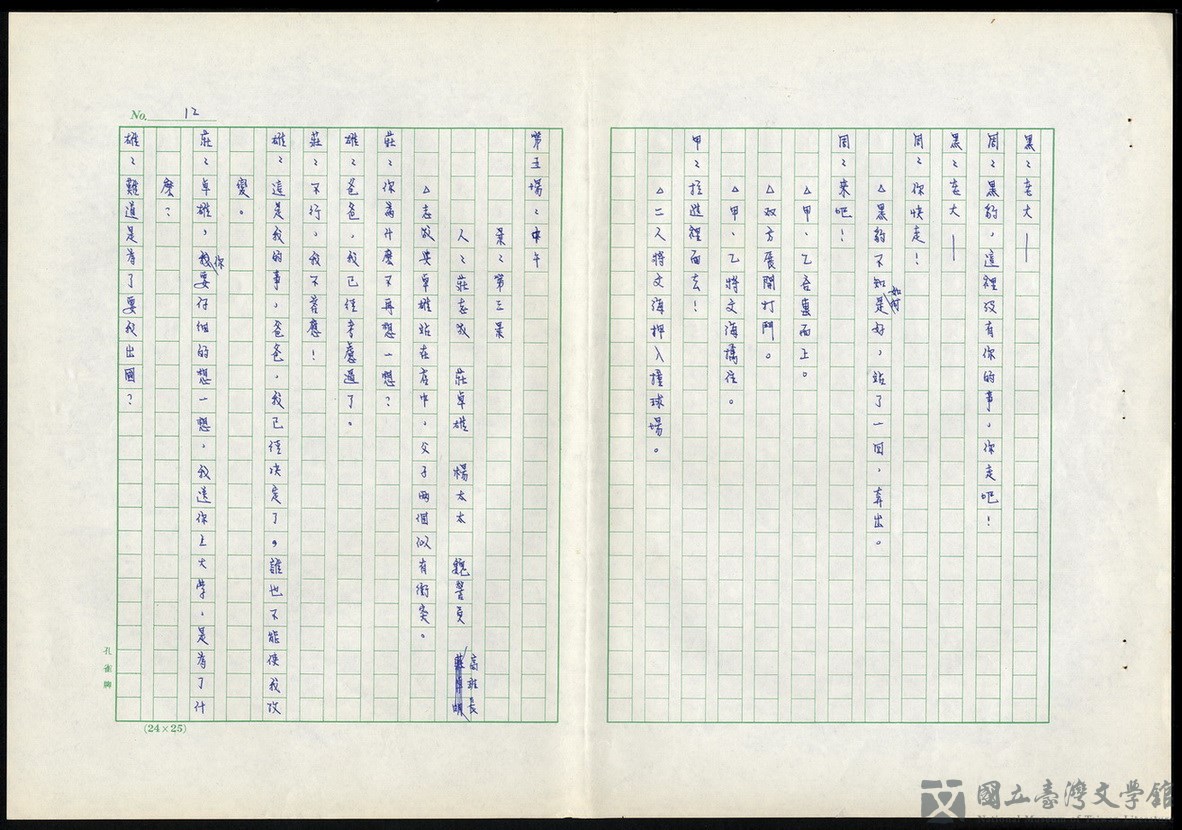 黑：老大——
周：黑豹，這裡沒有你的事，你走吧！
黑：老大——
周：你快走！
△黑豹不知如何是好，站了一回，奔出。
周：来吧！
△甲、乙吞惠而上。
△双方展開打鬥。
△甲、乙將文海擒住。
甲：拉進裡面去！
△二人將文海押入撞球場。
第五場：中午
景：第三景
人：莊志成 莊卓雄 楊太太 魏警員 高班長
△志成與卓雄站在店中，父子兩個似有衝突。
莊：你為什麼不再想一想？
雄：爸爸，我已經考慮過了。
莊：不行，我不答應！
雄：這是我的事，爸爸，我已經決定了，誰也不能使我改
變。
莊：卓雄，你要仔細的想一想，我送你上大学，是為了什
麼？
雄：難道是為了要我出國？
No. 12
(24×25)
孔雀牌
國立臺灣文學館
National Museum of Taiwan Literature